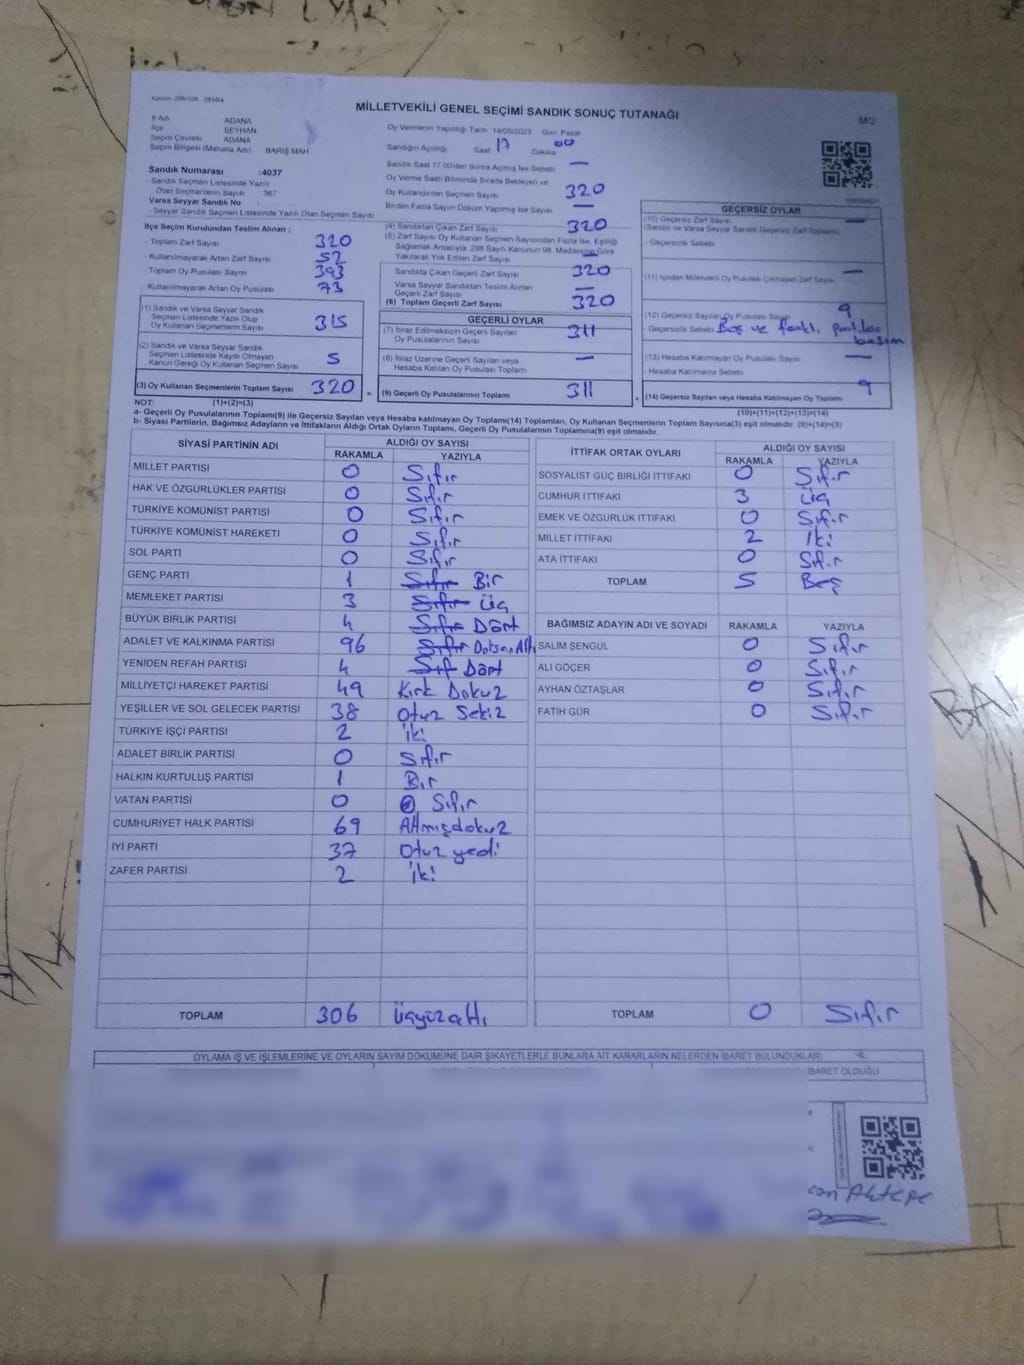 Kanun: 298/105 2839/4
MİLLETVEKİLİ GENEL SEÇİMİ SANDIK SONUÇ TUTANAĞI
M/2
İl Adı ADANA
İlçe SEYHAN
Seçim Çevresi ADANA
Seçim Bölgesi (Mahalle Adı) BARIŞ MAH
Oy Vermenin Yapıldığı Tarih 14/05/2023 Gün Pazar
Sandığın Açıldığı Saat 17 Dakika 00
Sandık Saat 17.00'den Sonra Açılmış İse Sebebi —
Oy Verme Saati Bitiminde Sırada Bekleyen ve
Oy Kullandırılan Seçmen Sayısı 320
Birden Fazla Sayım Döküm Yapılmış İse Sayısı —
Sandık Numarası : 4037
- Sandık Seçmen Listesinde Yazılı
Olan Seçmenlerin Sayısı 367
Varsa Seyyar Sandık No
- Seyyar Sandık Seçmen Listesinde Yazılı Olan Seçmen Sayısı
İlçe Seçim Kurulundan Teslim Alınan ;
- Toplam Zarf Sayısı 320
- Kullanılmayarak Artan Zarf Sayısı 52
- Toplam Oy Pusulası Sayısı 393
- Kullanılmayarak Artan Oy Pusulası 73
(1) Sandık ve Varsa Seyyar Sandık
Seçmen Listesinde Yazılı Olup
Oy Kullanan Seçmenlerin Sayısı 315
(2) Sandık ve Varsa Seyyar Sandık
Seçmen Listesinde Kayıtlı Olmayan
Kanun Gereği Oy Kullanan Seçmen Sayısı 5
(3) Oy Kullanan Seçmenlerin Toplam Sayısı 320 =
(4) Sandıktan Çıkan Zarf Sayısı 320
(5) Zarf Sayısı Oy Kullanan Seçmen Sayısından Fazla İse, Eşitliği
Sağlamak Amacıyla, 298 Sayılı Kanunun 98. Maddesine Göre
Yakılarak Yok Edilen Zarf Sayısı —
Sandıkta Çıkan Geçerli Zarf Sayısı 320
Varsa Seyyar Sandıktan Teslim Alınan
Geçerli Zarf Sayısı —
(6) Toplam Geçerli Zarf Sayısı 320
GEÇERLİ OYLAR
(7) İtiraz Edilmeksizin Geçerli Sayılan
Oy Pusulalarının Sayısı 311
(8) İtiraz Üzerine Geçerli Sayılan veya
Hesaba Katılan Oy Pusulası Toplamı —
(9) Geçerli Oy Pusulalarının Toplamı 311 +
GEÇERSİZ OYLAR
(10) Geçersiz Zarf Sayısı —
(Sandık ve Varsa Seyyar Sandık Geçersiz Zarf Toplamı)
- Geçersizlik Sebebi
(11) İçinden Milletvekili Oy Pusulası Çıkmayan Zarf Sayısı —
(12) Geçersiz Sayılan Oy Pusulası Sayısı 9
- Geçersizlik Sebebi Boş ve farklı partilere
basım
(13) Hesaba Katılmayan Oy Pusulası Sayısı —
- Hesaba Katılmama Sebebi
(14) Geçersiz Sayılan veya Hesaba Katılmayan Oy Toplamı 9
NOT: (1)+(2)=(3) (10)+(11)+(12)+(13)=(14)
a- Geçerli Oy Pusulalarının Toplamı(9) ile Geçersiz Sayılan veya Hesaba katılmayan Oy Toplamı(14) Toplamları, Oy Kullanan Seçmenlerin Toplam Sayısına(3) eşit olmalıdır. (9)+(14)=(3)
b- Siyasi Partilerin, Bağımsız Adayların ve İttifakların Aldığı Ortak Oyların Toplamı, Geçerli Oy Pusulalarının Toplamına(9) eşit olmalıdır.
SİYASİ PARTİNİN ADI ALDIĞI OY SAYISI
RAKAMLA YAZIYLA
MİLLET PARTİSİ 0 Sıfır
HAK VE ÖZGÜRLÜKLER PARTİSİ 0 Sıfır
TÜRKİYE KOMÜNİST PARTİSİ 0 Sıfır
TÜRKİYE KOMÜNİST HAREKETİ 0 Sıfır
SOL PARTİ 0 Sıfır
GENÇ PARTİ 1 Sıfır Bir
MEMLEKET PARTİSİ 3 Sıfır Üç
BÜYÜK BİRLİK PARTİSİ 4 Sıfır Dört
ADALET VE KALKINMA PARTİSİ 96 Sıfır Doksan Altı
YENİDEN REFAH PARTİSİ 4 Sıf Dört
MİLLİYETÇİ HAREKET PARTİSİ 49 Kırk Dokuz
YEŞİLLER VE SOL GELECEK PARTİSİ 38 Otuz Sekiz
TÜRKİYE İŞÇİ PARTİSİ 2 İki
ADALET BİRLİK PARTİSİ 0 Sıfır
HALKIN KURTULUŞ PARTİSİ 1 Bir
VATAN PARTİSİ 0 Sıfır
CUMHURİYET HALK PARTİSİ 69 Altmışdokuz
İYİ PARTİ 37 Otuz yedi
ZAFER PARTİSİ 2 İki
TOPLAM 306 Üçyüzaltı
İTTİFAK ORTAK OYLARI ALDIĞI OY SAYISI
RAKAMLA YAZIYLA
SOSYALİST GÜÇ BİRLİĞİ İTTİFAKI 0 Sıfır
CUMHUR İTTİFAKI 3 Üç
EMEK VE ÖZGÜRLÜK İTTİFAKI 0 Sıfır
MİLLET İTTİFAKI 2 İki
ATA İTTİFAKI 0 Sıfır
TOPLAM 5 Beş
BAĞIMSIZ ADAYIN ADI VE SOYADI RAKAMLA YAZIYLA
SALİM ŞENGÜL 0 Sıfır
ALİ GÖÇER 0 Sıfır
AYHAN ÖZTAŞLAR 0 Sıfır
FATİH GÜR 0 Sıfır
TOPLAM 0 Sıfır
OYLAMA İŞ VE İŞLEMLERİNE VE OYLARIN SAYIM DÖKÜMÜNE DAİR ŞİKAYETLERLE BUNLARA AİT KARARLARIN NELERDEN İBARET BULUNDUKLARI
İBARET OLDUĞU
can Aktepe